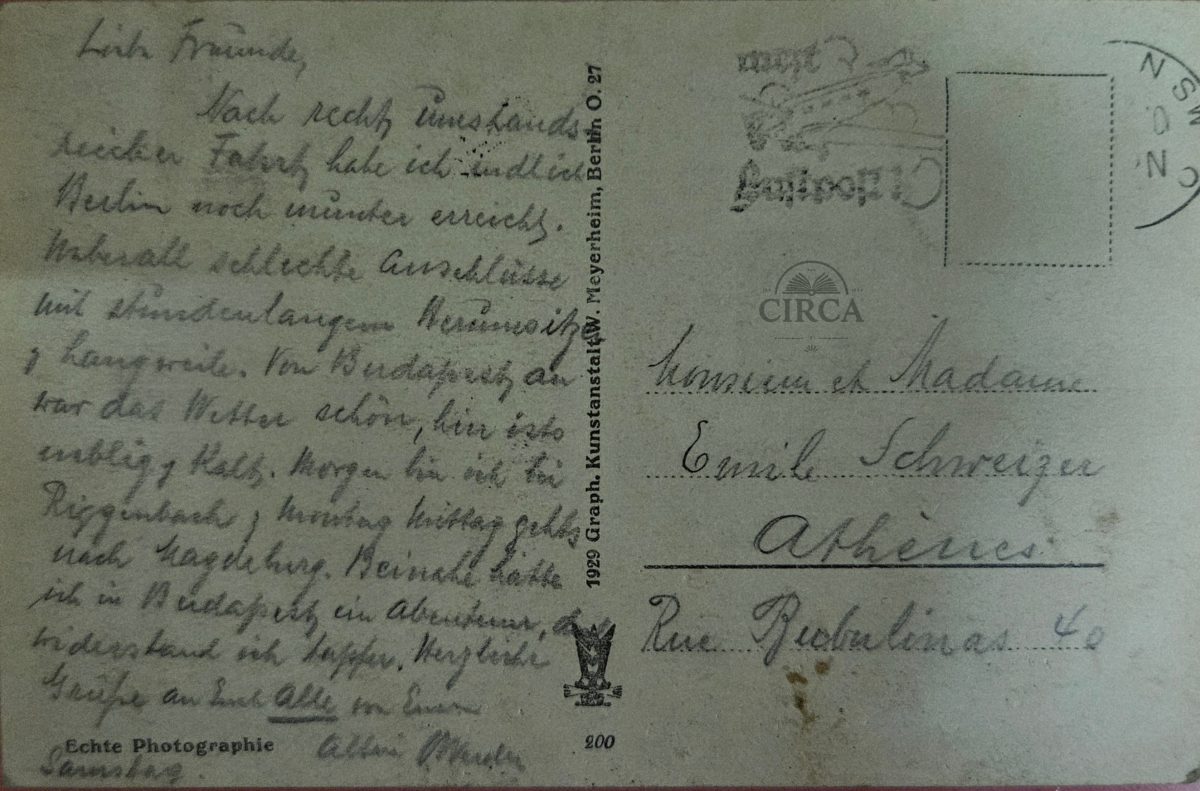 Liebe Freunde,
Nach recht umstands-
reicher Fahrt habe ich endlich
Berlin noch munter erreicht.
Ueberall schlechte Anschlüsse
mit stundenlangem Herumsitzen
& Langweile. Von Budapest an
war das Wetter schön, hier ists
neblig & Kalt. Morgen bin ich bei
Riggenbach & Montag Mittag gehts
nach Magdeburg. Beinahe hätte
ich in Budapest ein Abenteuer,
widerstand ich tapfer. Herzliche
Grüße an Euch Alle von Eurem
Samstag.
Echte Photographie
1929 Graph. Kunstanstalt W. Meyerheim, Berlin O. 27
200
mit
Luftpost!
CIRCA
Monsieur et Madame
Emile Schweizer
Athènes
Rue Bubulinas 40